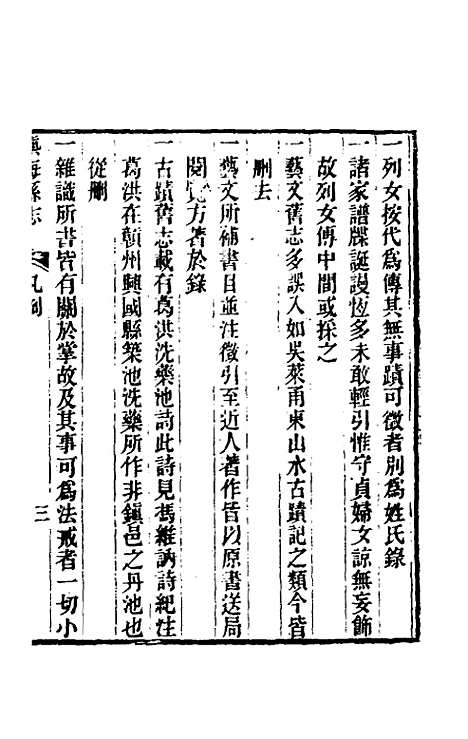 一列女按代為傳其無事蹟可徵者別為姓氏錄
一諸家譜牒誕謾恆多未敢輕引惟守貞婦女諒無妄飾
故列女傳中間或採之
一藝文舊志多誤入如吳萊甬東山水古蹟記之類今皆
刪去
一藝文所補書目並注徵引至近人著作皆以原書送局
閱覽方著於錄
一古蹟舊志載有葛洪洗藥池詩此詩見馮維訥詩紀注
葛洪在贛州興國縣築池洗藥所作非鎮邑之丹池也
從刪
一雜識所書皆有關於掌故及其事可為法戒者一切小
鎮海縣志 凡例 三